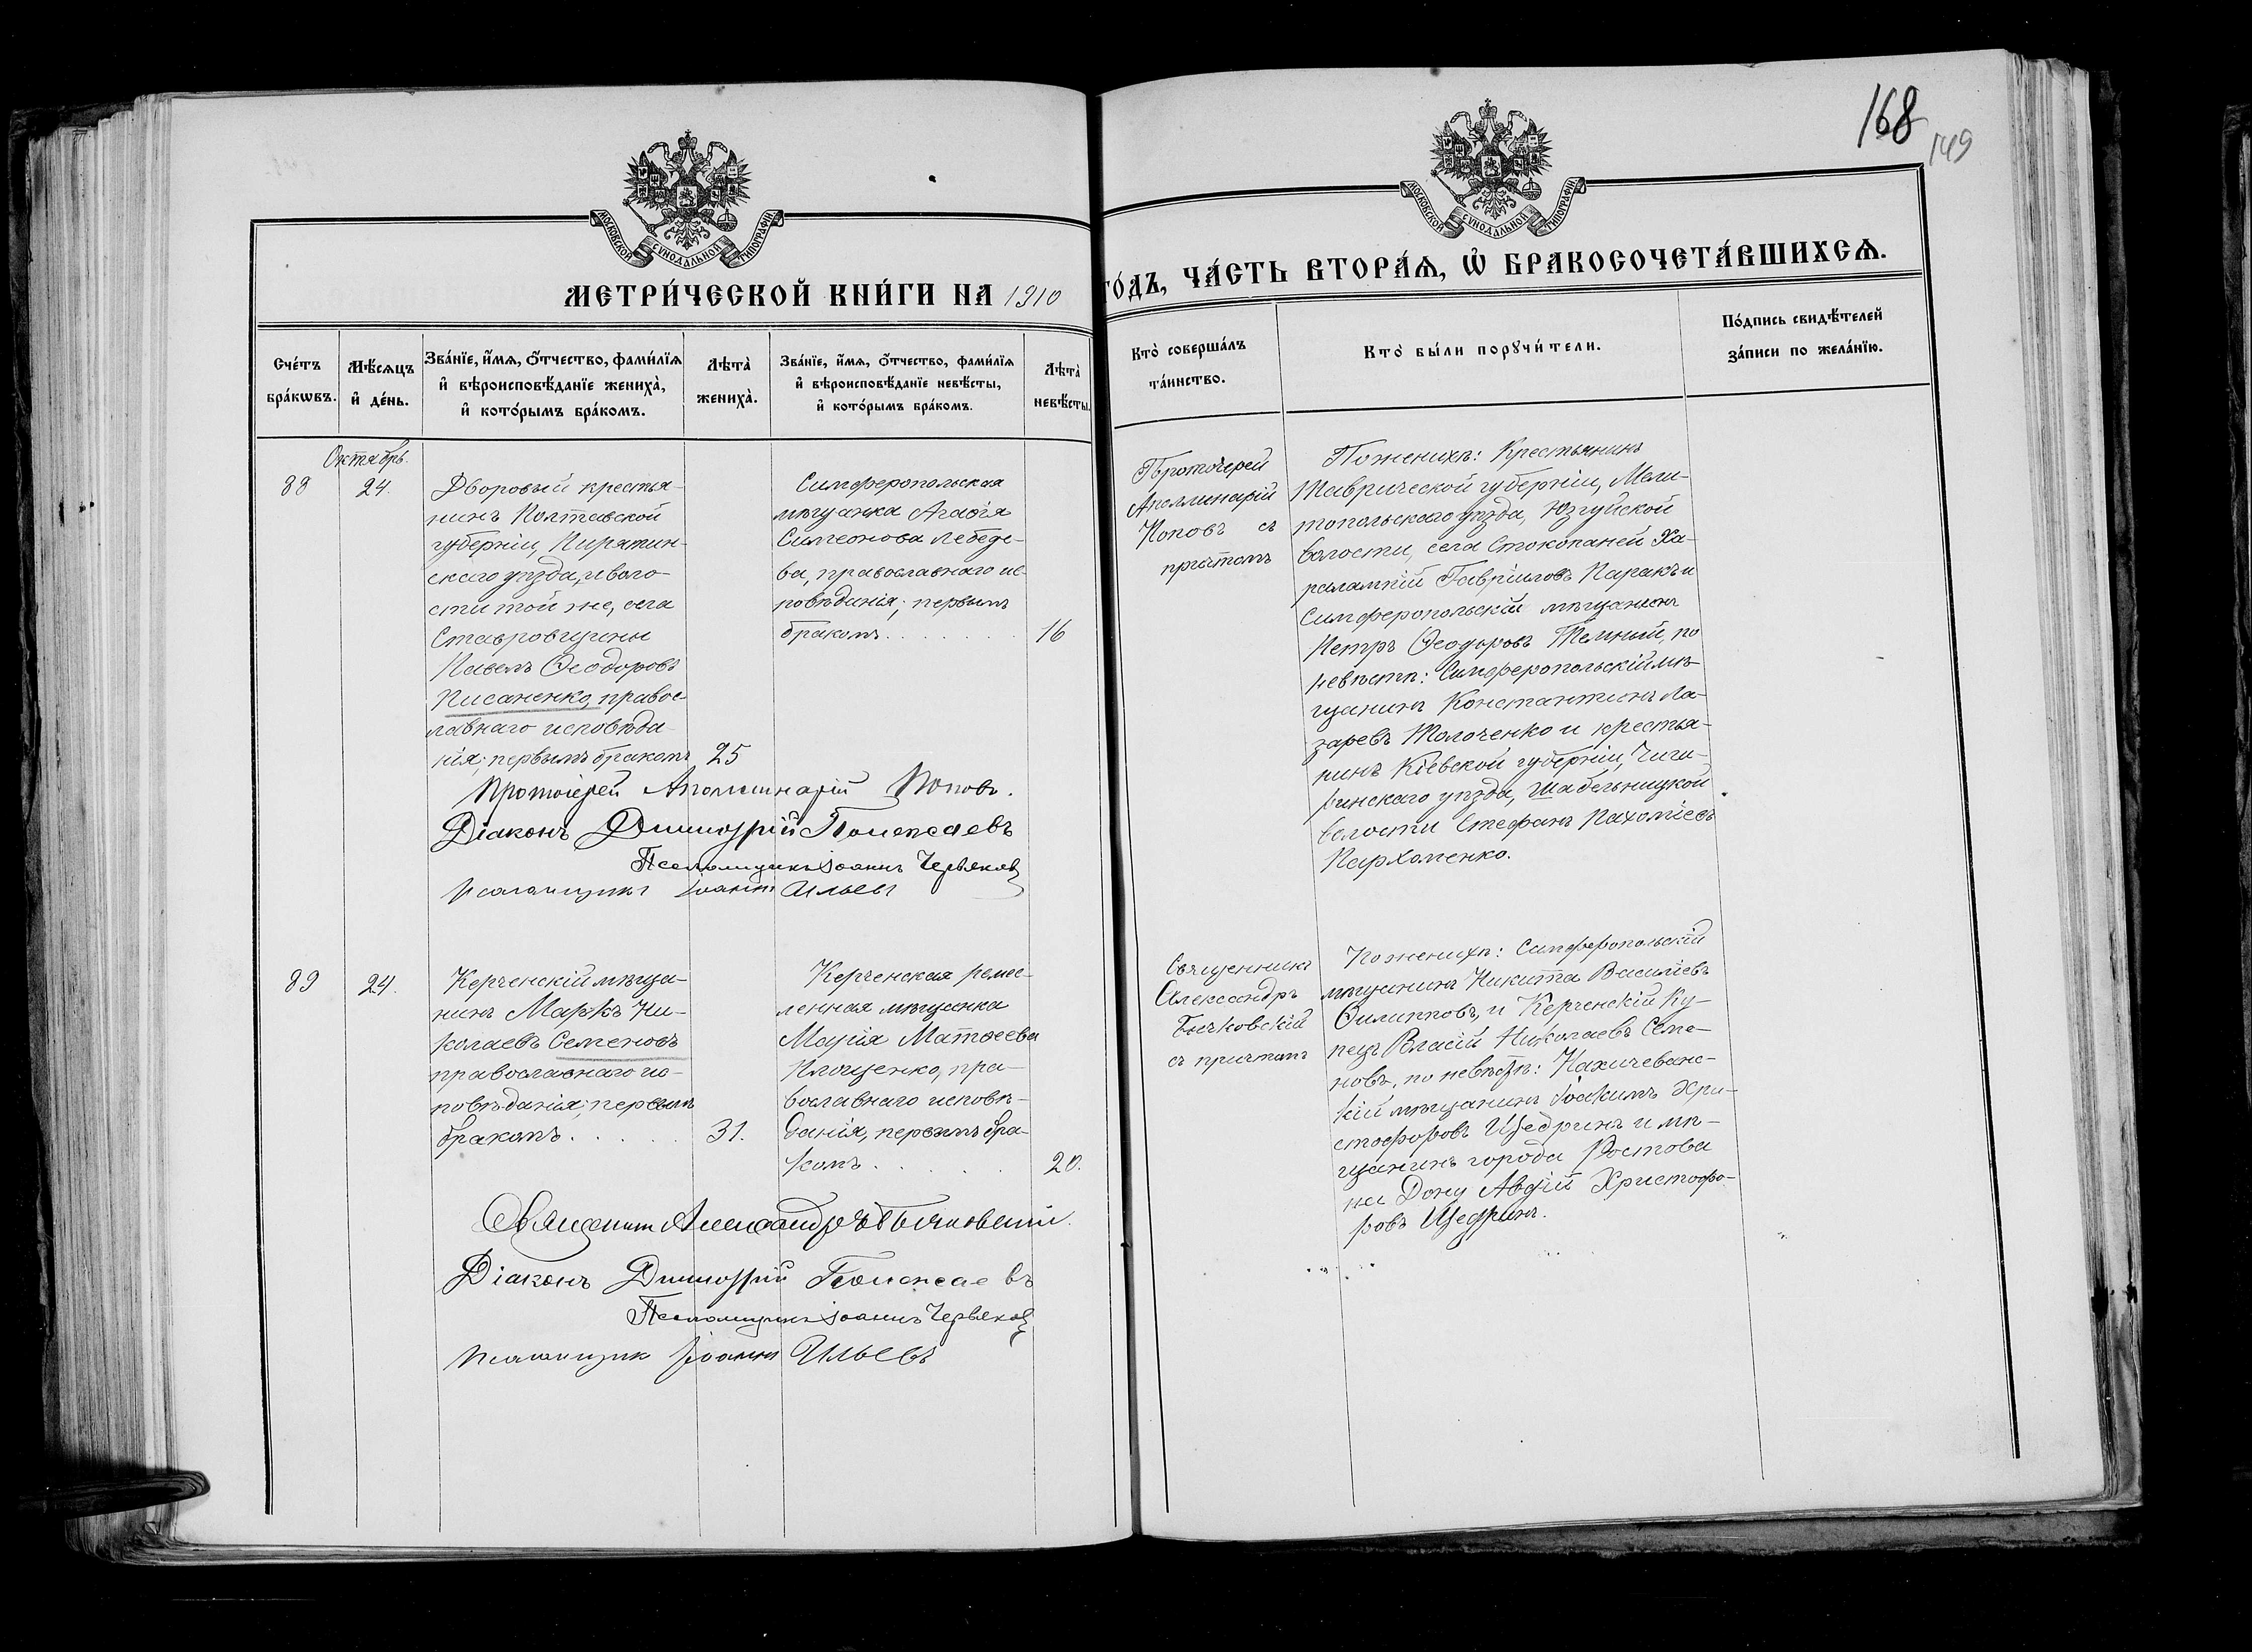 168
149
МОСКОВСКОЙ СУНОДАЛЬНОЙ ТИПОГРАФІИ
МОСКОВСКОЙ СУНОДАЛЬНОЙ ТИПОГРАФІИ
МЕТРИ́ЧЕСКОЙ КНИ́ГИ НА 1910
ГО́ДЪ, ЧА́СТЬ ВТОРА́Ѧ, Ѡ҆ БРАКОСОЧЕТА́ВШИХСѦ.
Сче́тъ
бра́кѡвъ.
Мѣ́сѧцъ
и҆ де́нь.
Зва́нїе, и҆́мѧ, ѻ҆́тчество, фами́лїѧ
и҆ вѣроисповѣ́данїе жениха̀,
и҆ кото́рымъ бра́комъ.
Лѣта̀
жениха̀.
Зва́нїе, и҆́мѧ, ѻ҆́тчество, фами́лїѧ
и҆ вѣроисповѣ́данїе невѣ́сты,
и҆ кото́рымъ бра́комъ.
Лѣта̀
невѣ́сты.
Кто̀ соверша́лъ
та́инство.
Кто̀ бы́ли порꙋчи́тели.
По́дпись свидѣ́телей
за́писи по жела́нїю.
Октябрь.
88
24.
Дворовый крестья-
нинъ Полтавской
губерніи, Пирятин-
скаго уѣзда, и воло-
сти той же, села
Ставровщины
Павелъ Ѳеодоровъ
Писаненко, правос-
лавнаго исповѣда-
нія; первымъ бракомъ
25
Симферопольская
мѣщанка Агаѳія
Симеонова Лебеде-
ва, православнаго ис-
повѣданія; первымъ
бракомъ.......
16
Протоіерей
Аполлинарій
Поповъ съ
причтомъ
По женихѣ: Крестьянинъ
Таврической губерніи, Мели-
топольскаго уѣзда, Юзгуйской
волости, села Стокопаней Ха-
ралампій Гавріиловъ Паракъ и
Симферопольскій мѣщанинъ
Петръ Ѳеодоровъ Темный, по
невѣстѣ: Симферопольскій мѣ-
щанинъ Константинъ Ла-
заревъ Толоченко и крестья-
нинъ Кіевской губерніи, Чиги-
ринскаго уѣзда, Шабельницкой
волости Стефанъ Пахоміевъ
Пархоменко.
Протоіерей Аполлинарій Поповъ.
Діаконъ Димитрій Полежаевъ
Псаломщикъ Іоаннъ Червяковъ
Псаломщикъ Іоаннъ Ильевъ
89
24.
Керченскій мѣща-
нинъ Маркъ Ни-
колаевъ Семеновъ
православнаго ис-
повѣданія; первымъ
бракомъ.....
31.
Керченская ремес-
ленная мѣщанка
Марія Матѳеева
Площенко, пра-
вославнаго исповѣ-
данія, первымъ бра-
комъ.....
20.
Священникъ
Александръ
Бычковскій
съ причтомъ
По женихѣ: Симферопольскій
мѣщанинъ Никита Василіевъ
Филипповъ, и Керченскій ку-
пецъ Власій Николаевъ Семе-
новъ, по невѣстѣ: Нахичеванс-
кій мѣщанинъ Іоакимъ Хри-
стофоровъ Щедринъ и мѣ-
щанинъ города Ростова
на Дону Авдій Христофо-
ровъ Щедринъ.
Священникъ Александръ Бычковскій.
Діаконъ Димитрій Полежаевъ
Псаломщикъ Іоаннъ Червяковъ
Псаломщик Іоаннъ Ильевъ